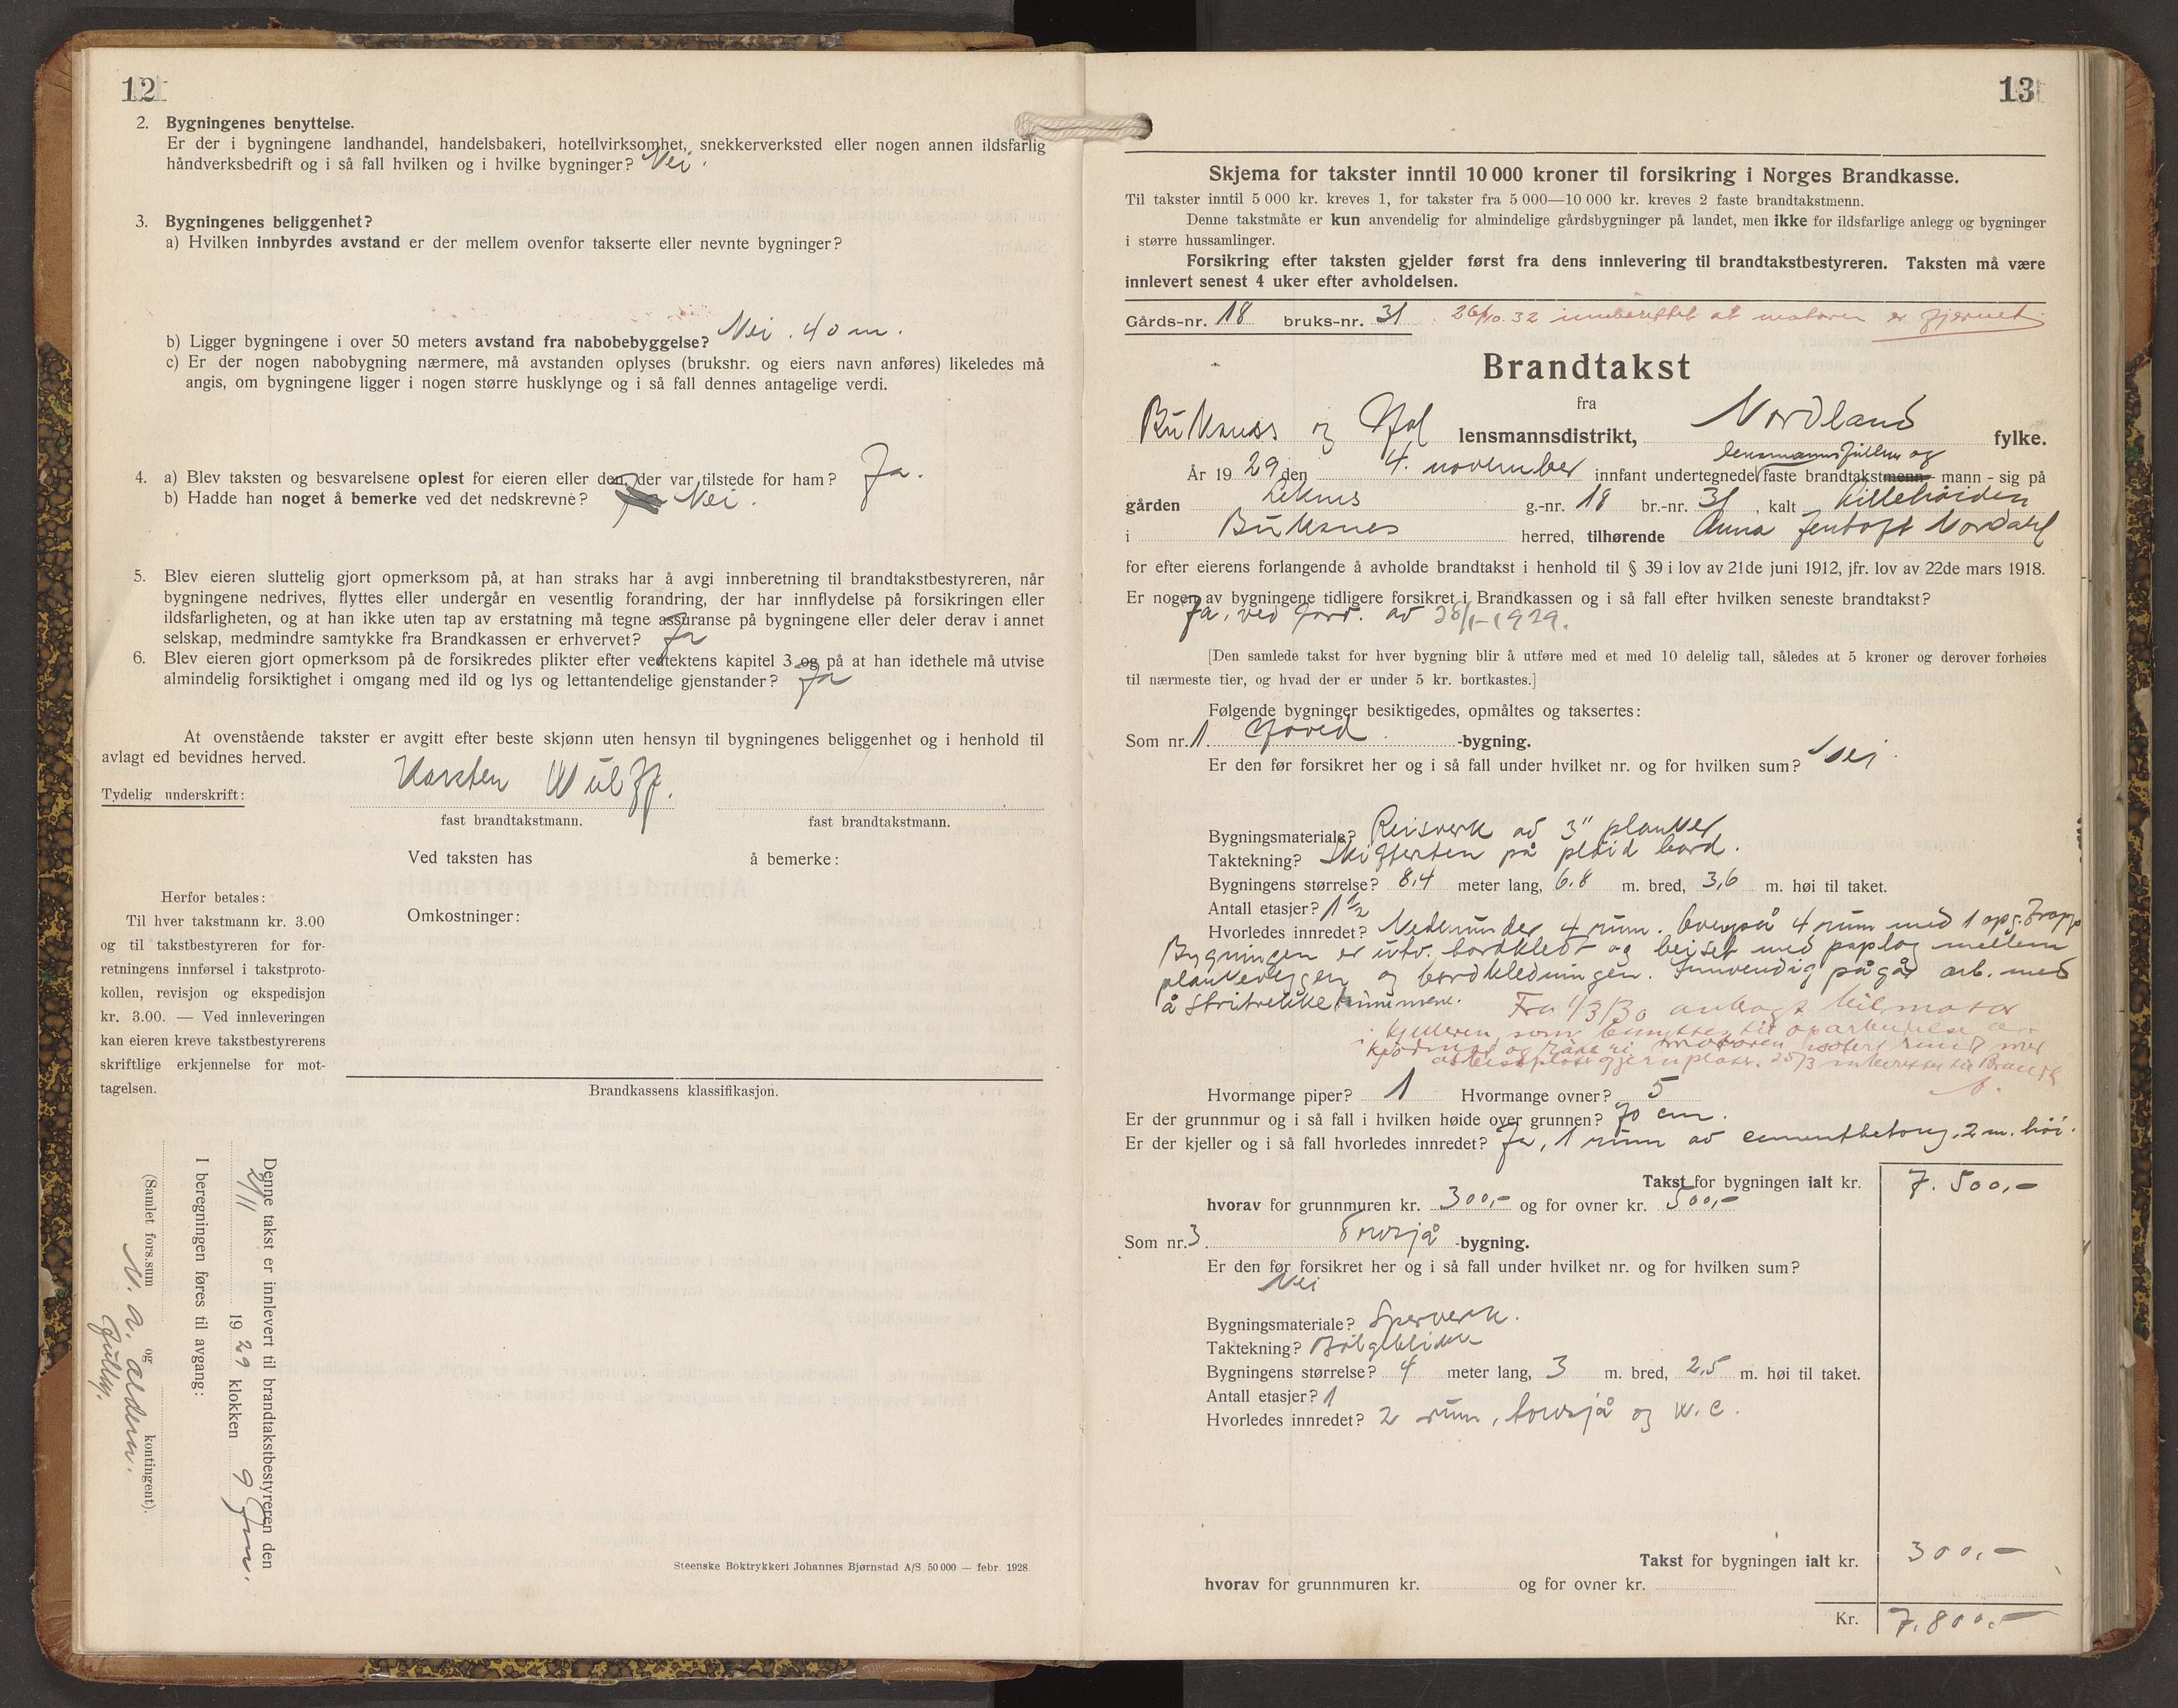 12
2. Bygningenes benyttelse.
Er der i bygningene landhandel, handelsbakeri, hotellvirksomhet, snekkerverksted eller nogen annen ildsfarlig
håndverksbedrift og i så fall hvilken og i hvilke bygninger? Nei.
3. Bygningenes beliggenhet?
a) Hvilken innbyrdes avstand er der mellem ovenfor takserte eller nevnte bygninger?
b) Ligger bygningene i over 50 meters avstand fra nabobebyggelse? Nei. 40 m.
c) Er der nogen nabobygning nærmere, må avstanden oplyses (bruksnr. og eiers navn anføres) likeledes må
angis, om bygningene ligger i nogen større husklynge og i så fall dennes antagelige verdi.
4. a) Blev taksten og besvarelsene oplest for eieren eller den, der var tilstede for ham? Ja.
b) Hadde han noget å bemerke ved det nedskrevne? Nei.
5. Blev eieren sluttelig gjort opmerksom på, at han straks har å avgi innberetning til brandtakstbestyreren, når
bygningene nedrives, flyttes eller undergår en vesentlig forandring, der har innflydelse på forsikringen eller
ildsfarligheten, og at han ikke uten tap av erstatning må tegne assuranse på bygningene eller deler derav i annet
selskap, medmindre samtykke fra Brandkassen er erhvervet? Ja
6. Blev eieren gjort opmerksom på de forsikredes plikter efter vedtektens kapitel 3 og på at han idethele må utvise
almindelig forsiktighet i omgang med ild og lys og lettantendelige gjenstander? Ja
At ovenstående takster er avgitt efter beste skjønn uten hensyn til bygningenes beliggenhet og i henhold til
avlagt ed bevidnes herved.
Tydelig underskrift: Karsten Wulff.
fast brandtakstmann. fast brandtakstmann.
Ved taksten has å bemerke:
Omkostninger:
Herfor betales:
Til hver takstmann kr. 3.00
og til takstbestyreren for for-
retningens innførsel i takstproto-
kollen, revisjon og ekspedisjon
kr. 3.00. — Ved innleveringen
kan eieren kreve takstbestyrerens
skriftlige erkjennelse for mot-
tagelsen.
Brandkassens klassifikasjon.
Denne takst er innlevert til brandtakstbestyreren den
2/11 1929 klokken 9 fm.
I beregningen føres til avgang:
(Samlet fors.sum og kontingent).
Steenske Boktrykkeri Johannes Bjørnstad A/S 50 000 — febr. 1928
13
Skjema for takster inntil 10 000 kroner til forsikring i Norges Brandkasse.
Til takster inntil 5 000 kr. kreves 1, for takster fra 5 000—10 000 kr. kreves 2 faste brandtakstmenn.
Denne takstmåte er kun anvendelig for almindelige gårdsbygninger på landet, men ikke for ildsfarlige anlegg og bygninger
i større hussamlinger.
Forsikring efter taksten gjelder først fra dens innlevering til brandtakstbestyreren. Taksten må være
innlevert senest 4 uker efter avholdelsen.
Gårds-nr. 18 bruks-nr. 31 26/10.32 innberettet at motoren er fjernet
Brandtakst
fra
Buksnes og Hol lensmannsdistrikt, Nordland fylke.
År 1929 den 4. november innfant undertegnede lensmannsfullm og faste brandtakstmenn- mann - sig på
gården Leknes g.-nr. 18 br.-nr. 31, kalt Lillehøiden
i Buksnes herred, tilhørende Anna Jentoft Nordahl
for efter eierens forlangende å avholde brandtakst i henhold til § 39 i lov av 21de juni 1912, jfr. lov av 22de mars 1918.
Er nogen av bygningene tidligere forsikret i Brandkassen og i så fall efter hvilken seneste brandtakst?
Ja, ved forr. av 26/1-1929.
[Den samlede takst for hver bygning blir å utføre med et med 10 delelig tall, således at 5 kroner og derover forhøies
til nærmeste tier, og hvad der er under 5 kr. bortkastes.]
Følgende bygninger besiktigedes, opmåltes og taksertes:
Som nr. 1 Hoved -bygning.
Er den før forsikret her og i så fall under hvilket nr. og for hvilken sum? Nei.
Bygningsmateriale? Reisverk av 3" planker
Taktekning? Skiffersten på pløid bord.
Bygningens størrelse? 8,4 meter lang, 6.8 m. bred, 3,6 m. høi til taket.
Antall etasjer? 1 1/2
Hvorledes innredet? Nedenunder 4 rum. Ovenpå 4 rum med 1 opg. trapp
Bygningen er utv. bordkledt og beiset med paplag mellem
plankeveggen og bordkledningen. Innvendig pågår arb. med
å stritrekke rummene.
Fra 1/3/30 anbragt bilmotor
i kjelleren, som benyttes til oparbeidelse av
Hvormange piper? 1 Hvormange ovner? 5
Er der grunnmur og i så fall i hvilken høide over grunnen? 70 cm.
Er der kjeller og i så fall hvorledes innredet? Ja, 1 rum av cementbetong, 2 m. høi.
Takst for bygningen ialt kr. 7.500,-
hvorav for grunnmuren kr. 300,- og for ovner kr. 500,-
Som nr. 3 Torvsjå -bygning.
Er den før forsikret her og i så fall under hvilket nr. og for hvilken sum?
Nei
Bygningsmateriale? Sperverk.
Taktekning? Bølgeblikk
Bygningens størrelse? 4 meter lang, 3 m. bred, 2,5 m. høi til taket.
Antall etasjer? 1
Hvorledes innredet? 2 rum, torvsjå og W.C.
Takst for bygningen ialt kr. 300,-
hvorav for grunnmuren kr. og for ovner kr.
Kr. 7.800,-